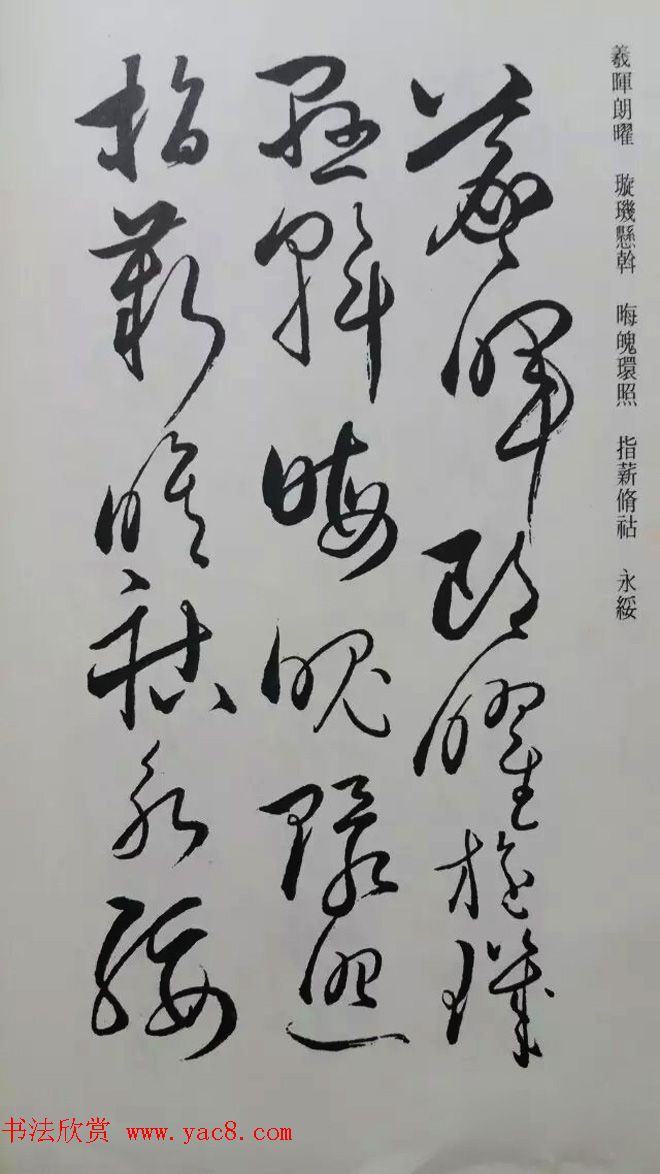 羲暉朗曜 璇璣懸斡 晦魄環照 指薪脩祜 永綏
羲暉朗曜璇璣
懸斡晦魄環照
指薪脩祜永綏
书法欣赏 www.yac8.com